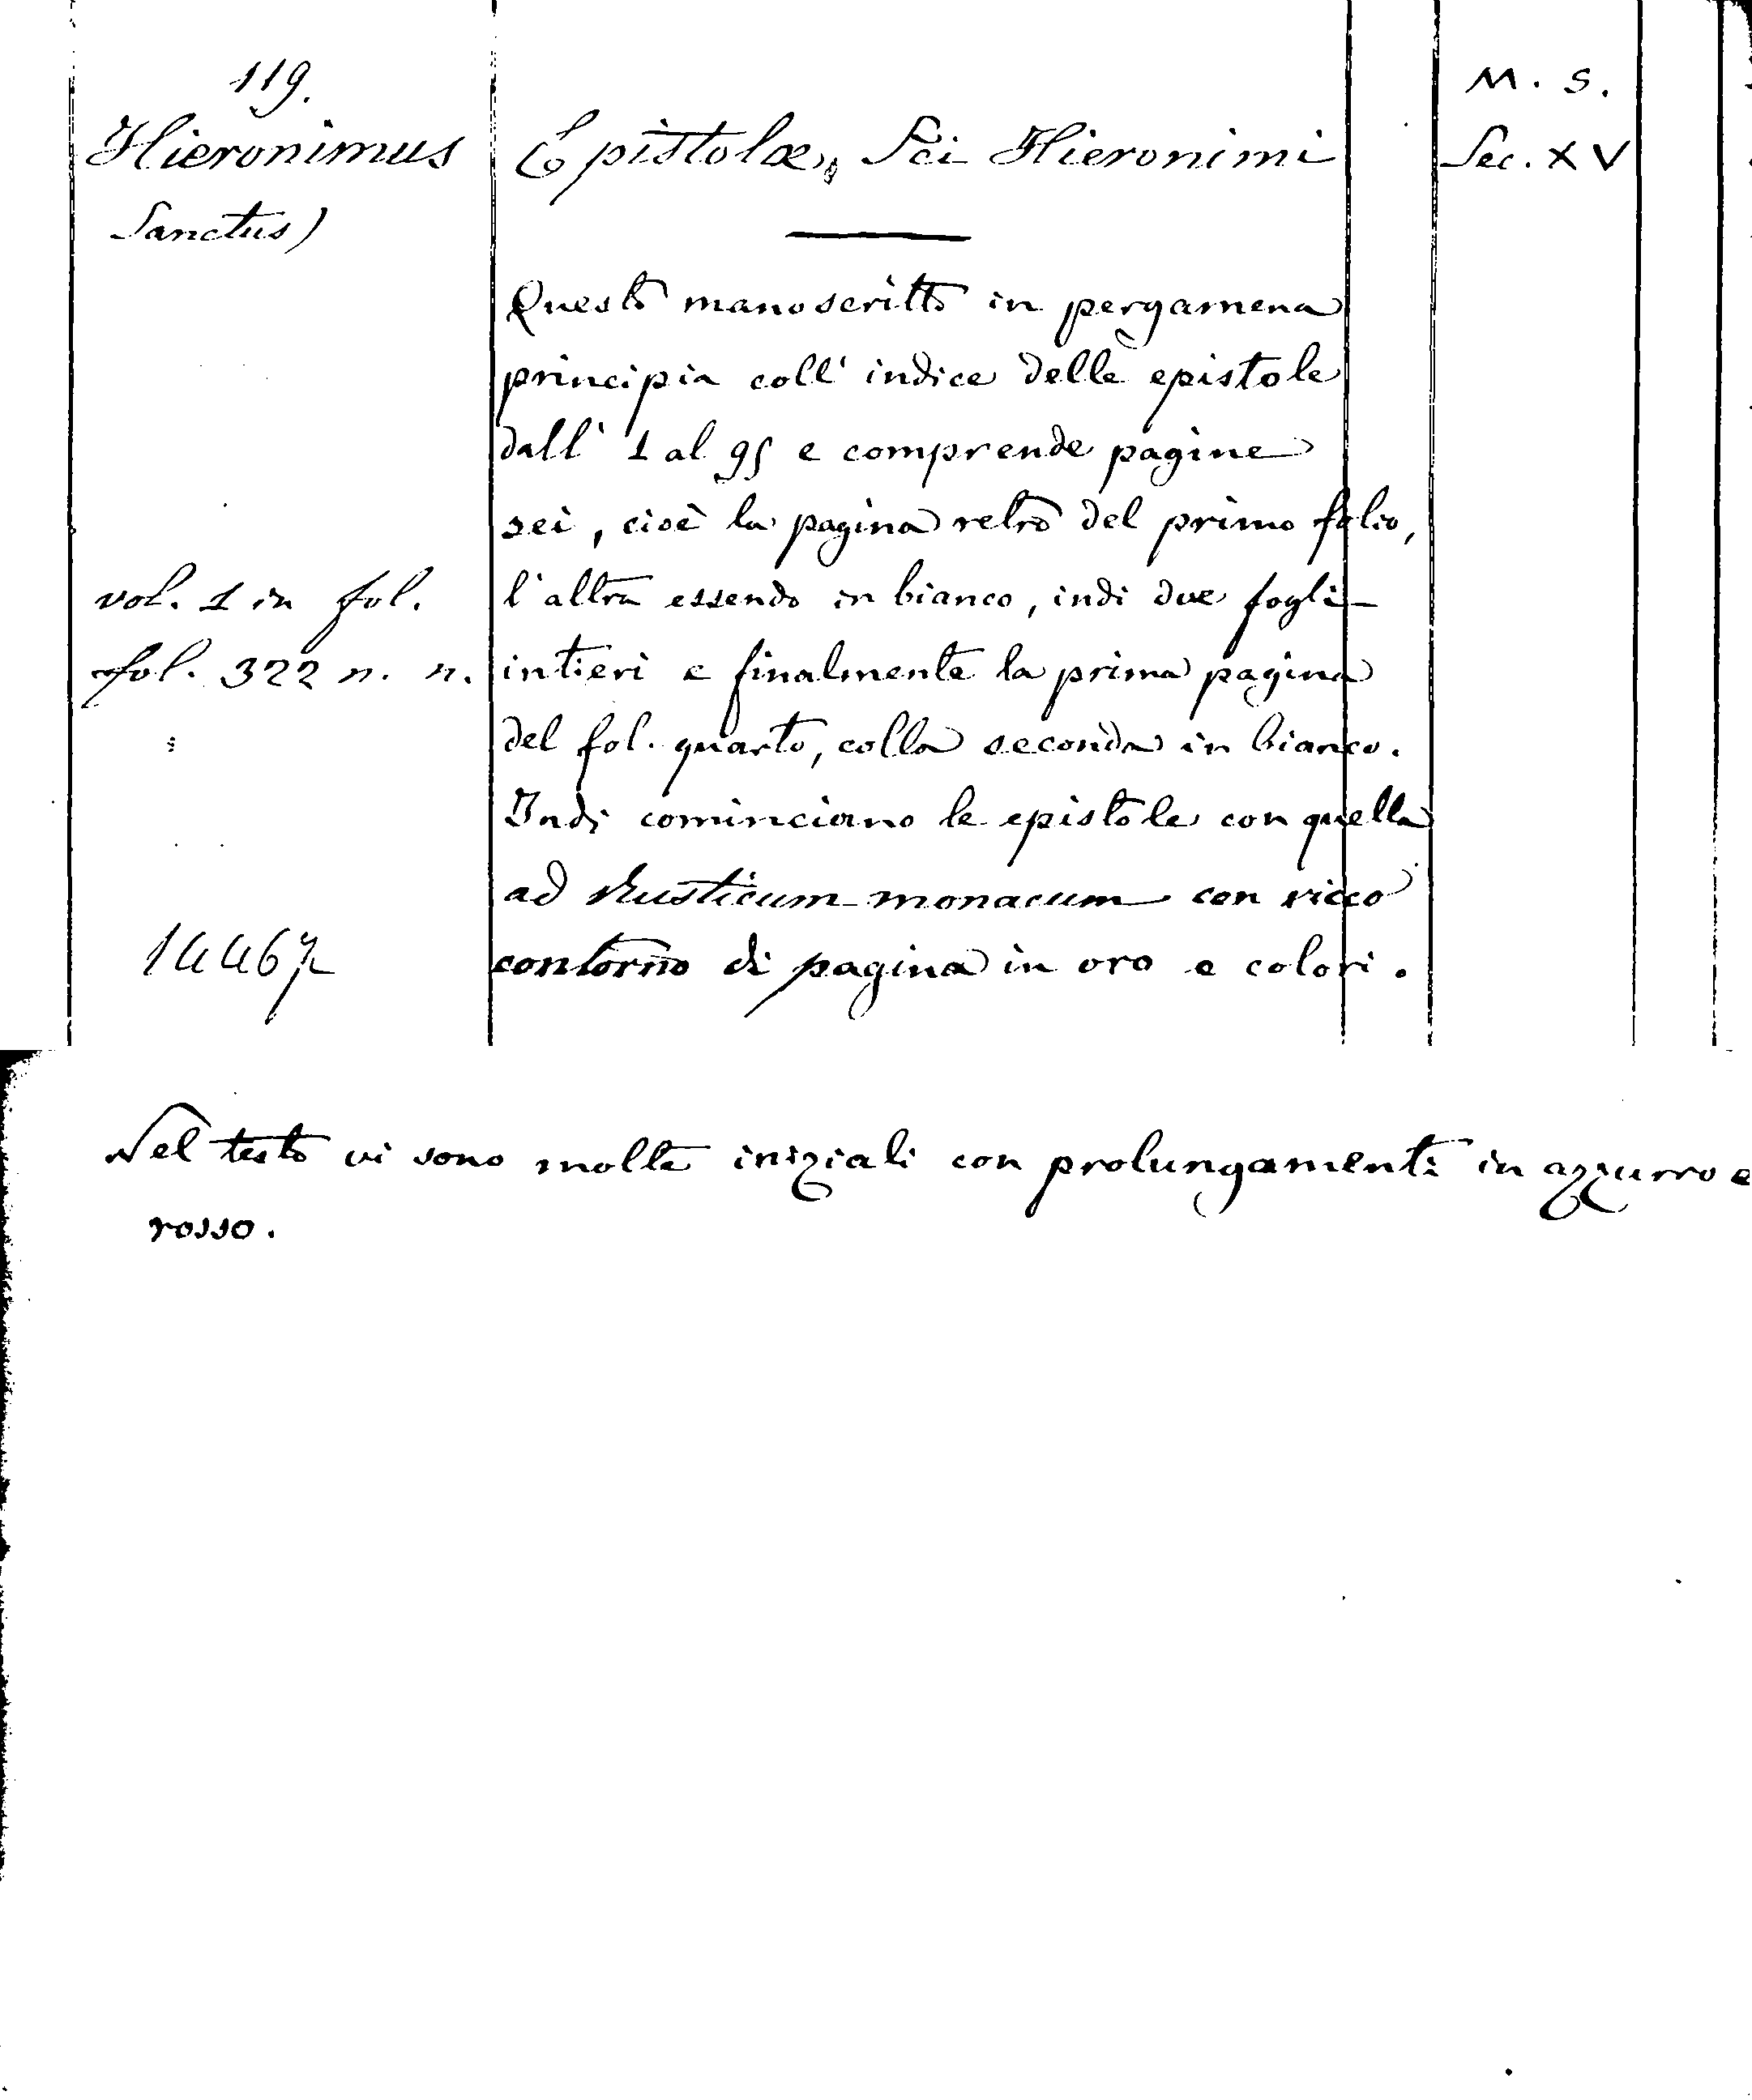 119.
Hieronimus
Sanctus)
vol. 1 in fol.
fol. 322 n. n.
14467
Epistolæ, Sci Hieronimi
Questo manoscritto in pergamena
principia coll' indice delle epistole
dall' 1 al 95 e comprende pagine
sei, cioè la pagina retro del primo folio,
l'altra essendo in bianco, indi due fogli
intieri e finalmente la prima pagina
del fol. quarto, colla seconda in bianco.
Indi cominciano le epistole con quella
ad Rusticum monacum con ricco
contorno di pagina in oro e colori.
M. S.
Sec. XV
Nel testo vi sono molte iniziali con prolungamenti in azzurro e
rosso.